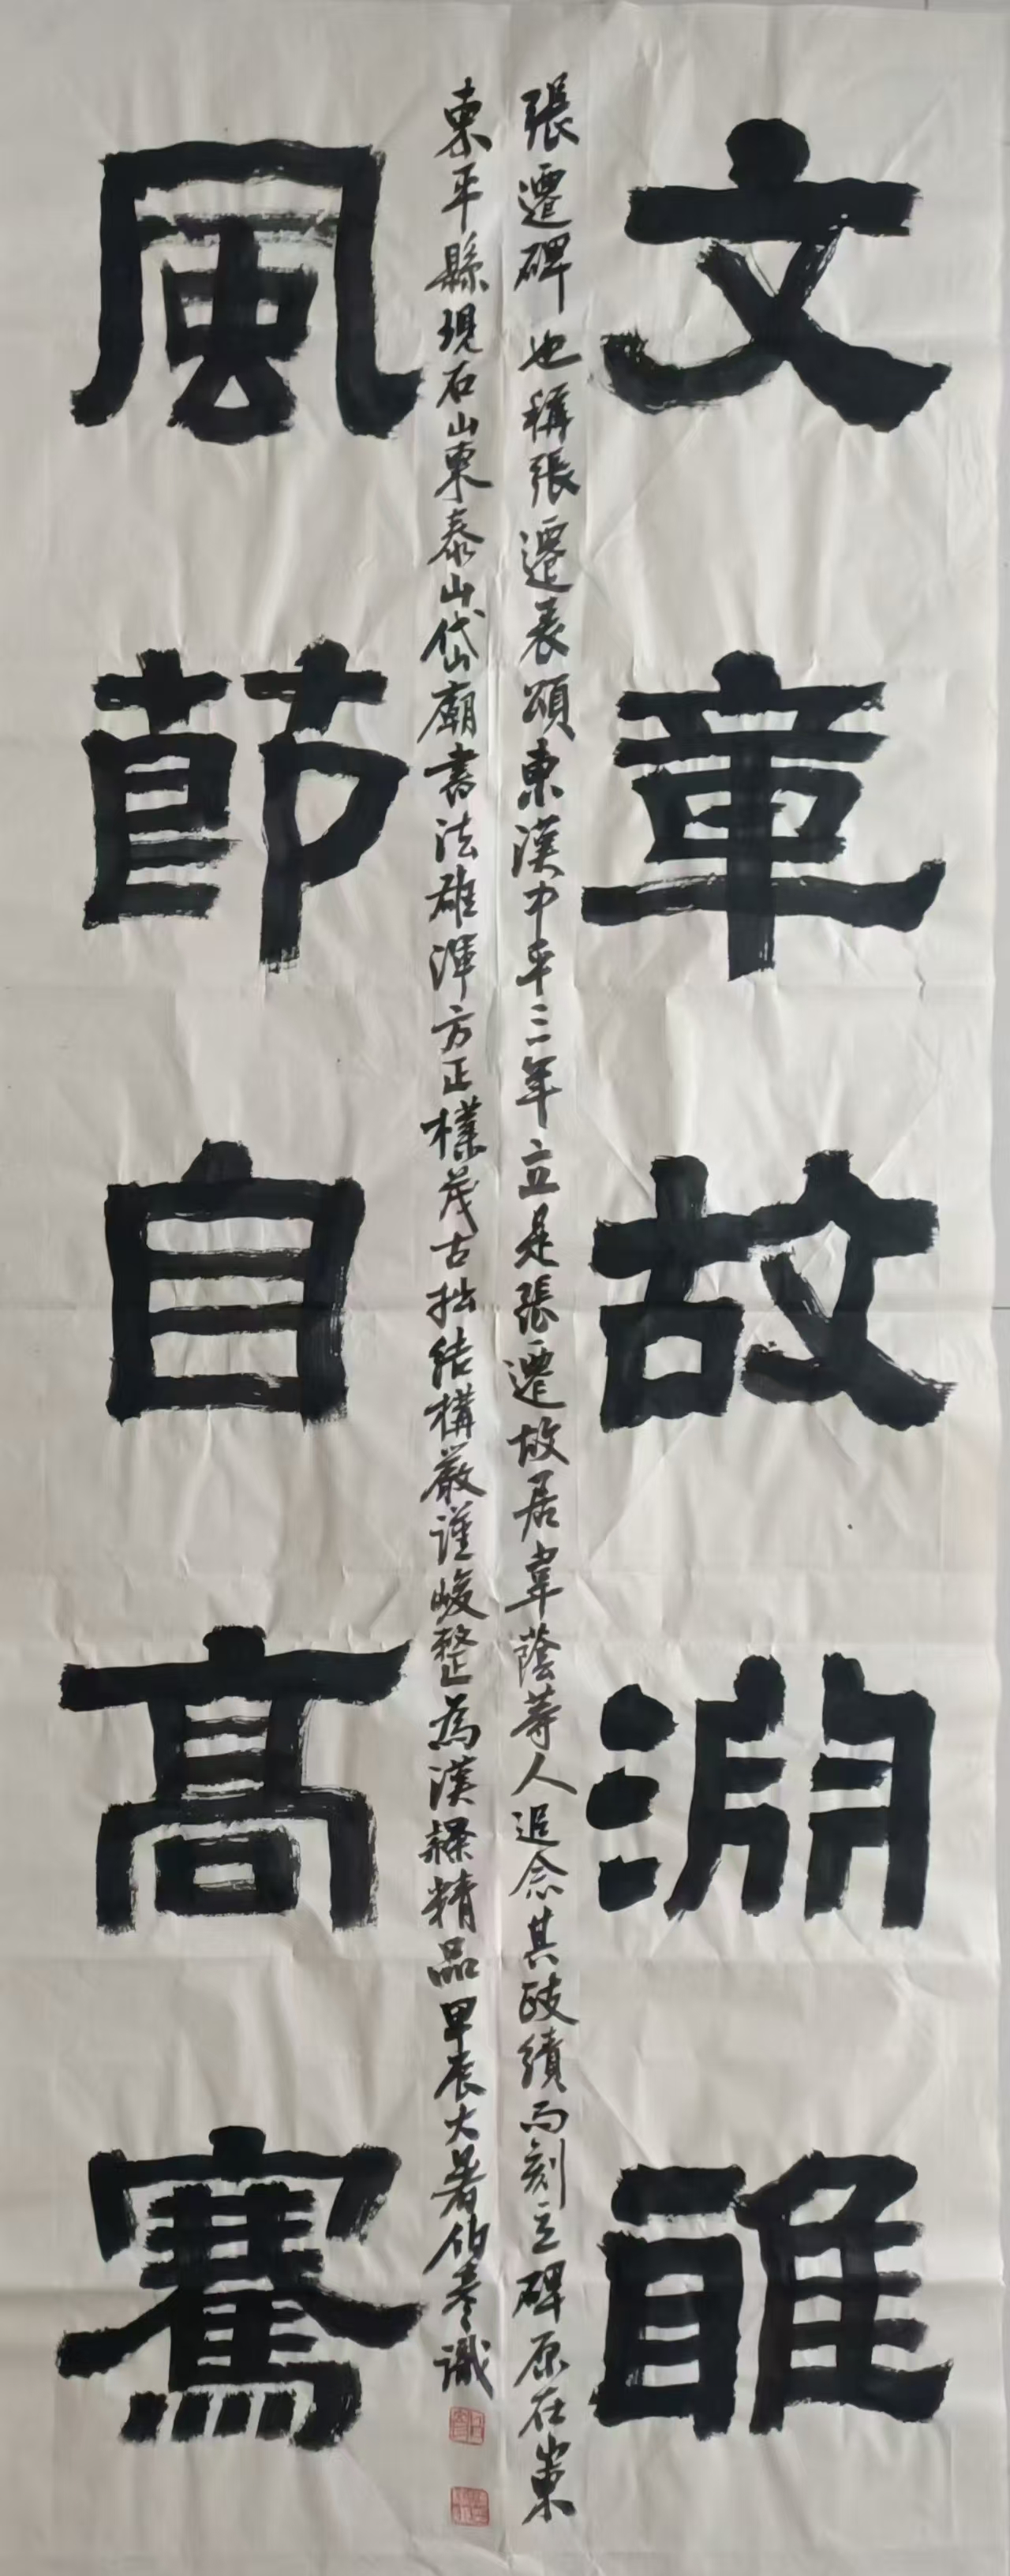 文章故淵雅
張遷碑也稱張遷表頌東漢中平三年立是張遷故居韋蔭等人追念其政績而刻立碑原在山東
東平縣現石山東泰山岱廟書法雄渾方正樸茂古拙結構嚴謹峻整為漢隸精品甲辰大暑伯春識
風節自高騫